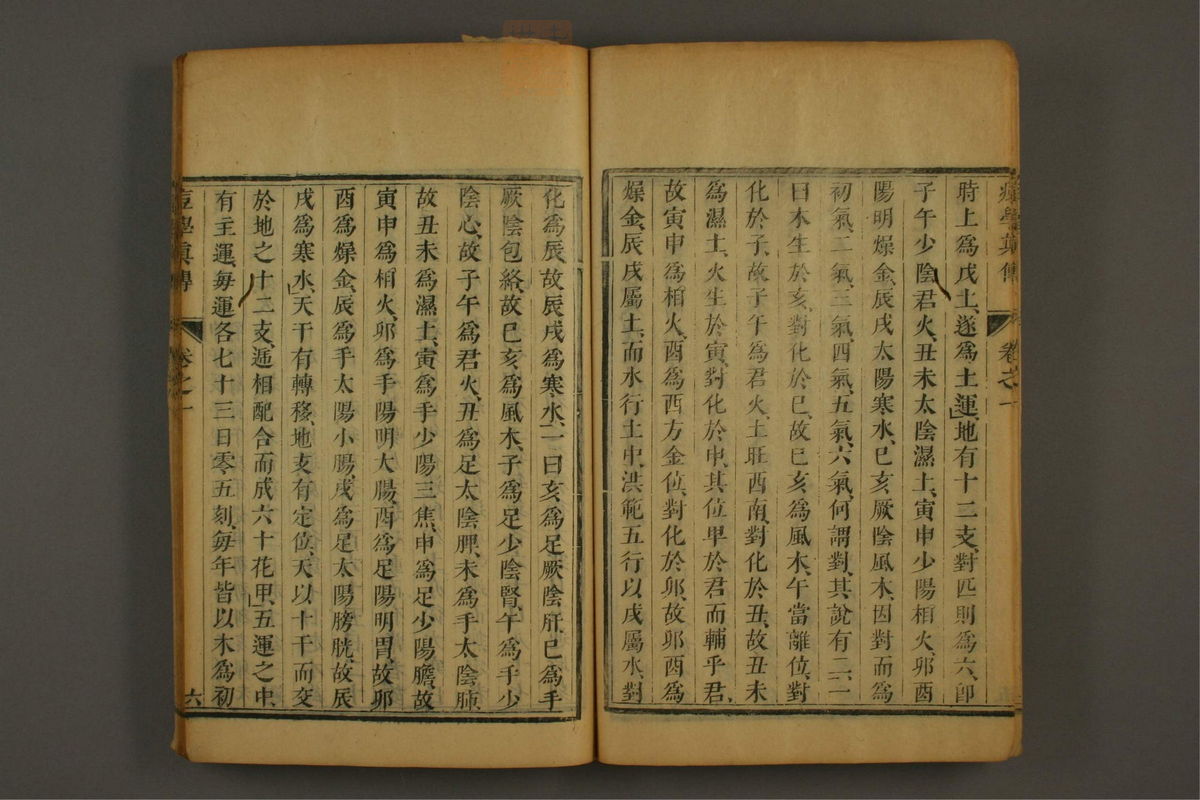 時上爲戊土、遂爲土運、地有十二支、對匹則爲六、卽
子午少陰君火、丑未太陰濕土、寅申少陽相火、卯酉
陽明燥金、辰戌太陽寒水、巳亥厥陰風木、因對而爲
初氣、二氣、三氣、四氣、五氣、六氣、何謂對、其說有二、一
曰木生於亥、對化於巳、故巳亥爲風木、午當離位、對
化於子、故子午爲君火、土旺西南、對化於丑、故丑未
爲濕土、火生於寅、對化於申、其位卑於君而輔乎君、
故寅申爲相火、酉爲西方金位、對化於卯、故卯酉爲
燥金、辰戌屬土、而水行土中、洪範五行以戌屬水、對
化爲辰、故辰戌爲寒水、一曰亥爲足厥陰肝、巳爲手
厥陰包絡、故巳亥爲風木、子爲足少陰腎、午爲手少
陰心、故子午爲君火、丑爲足太陰脾、未爲手太陰肺、
故丑未爲濕土、寅爲手少陽三焦、申爲足少陽膽、故
寅申爲相火、卯爲手陽明大腸、酉爲足陽明胃、故卯
酉爲燥金、辰爲手太陽小腸、戌爲足太陽膀胱、故辰
戌爲寒水、天干有轉移、地支有定位、天以十干而交
於地之十二支、遞相配合而成六十花甲、五運之中、
有主運、每運各七十三日零五刻、每年皆以木爲初
痘學眞傳 卷之一 六